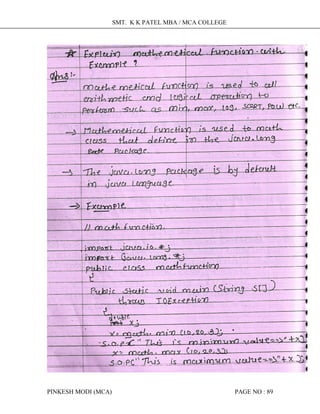 SMT. K K PATEL MBA / MCA COLLEGE
* Explain mathemetical function with
Example ?
Ans:-
mathemetical function is used to call
arithmetic and logical operation to
perform such as min, max, log, SQRT, Pow etc.
→ Mathemetical function is used to math
class that define in the java.lang
Package.
→ The java.lang package is by default
in java language.
→ Example
// math function.
import java.io.*;
import java.lang.*;
public class mathfunction
{
Public static void main (String s[])
throws IOException
{
double x;
x = math. min (10,20.3);
S.O.P(" This is minimum value=>"+x);
x = math. max (10,20.3);
S.O.P("This is maximum value=>"+x);
PINKESH MODI (MCA) PAGE NO : 89